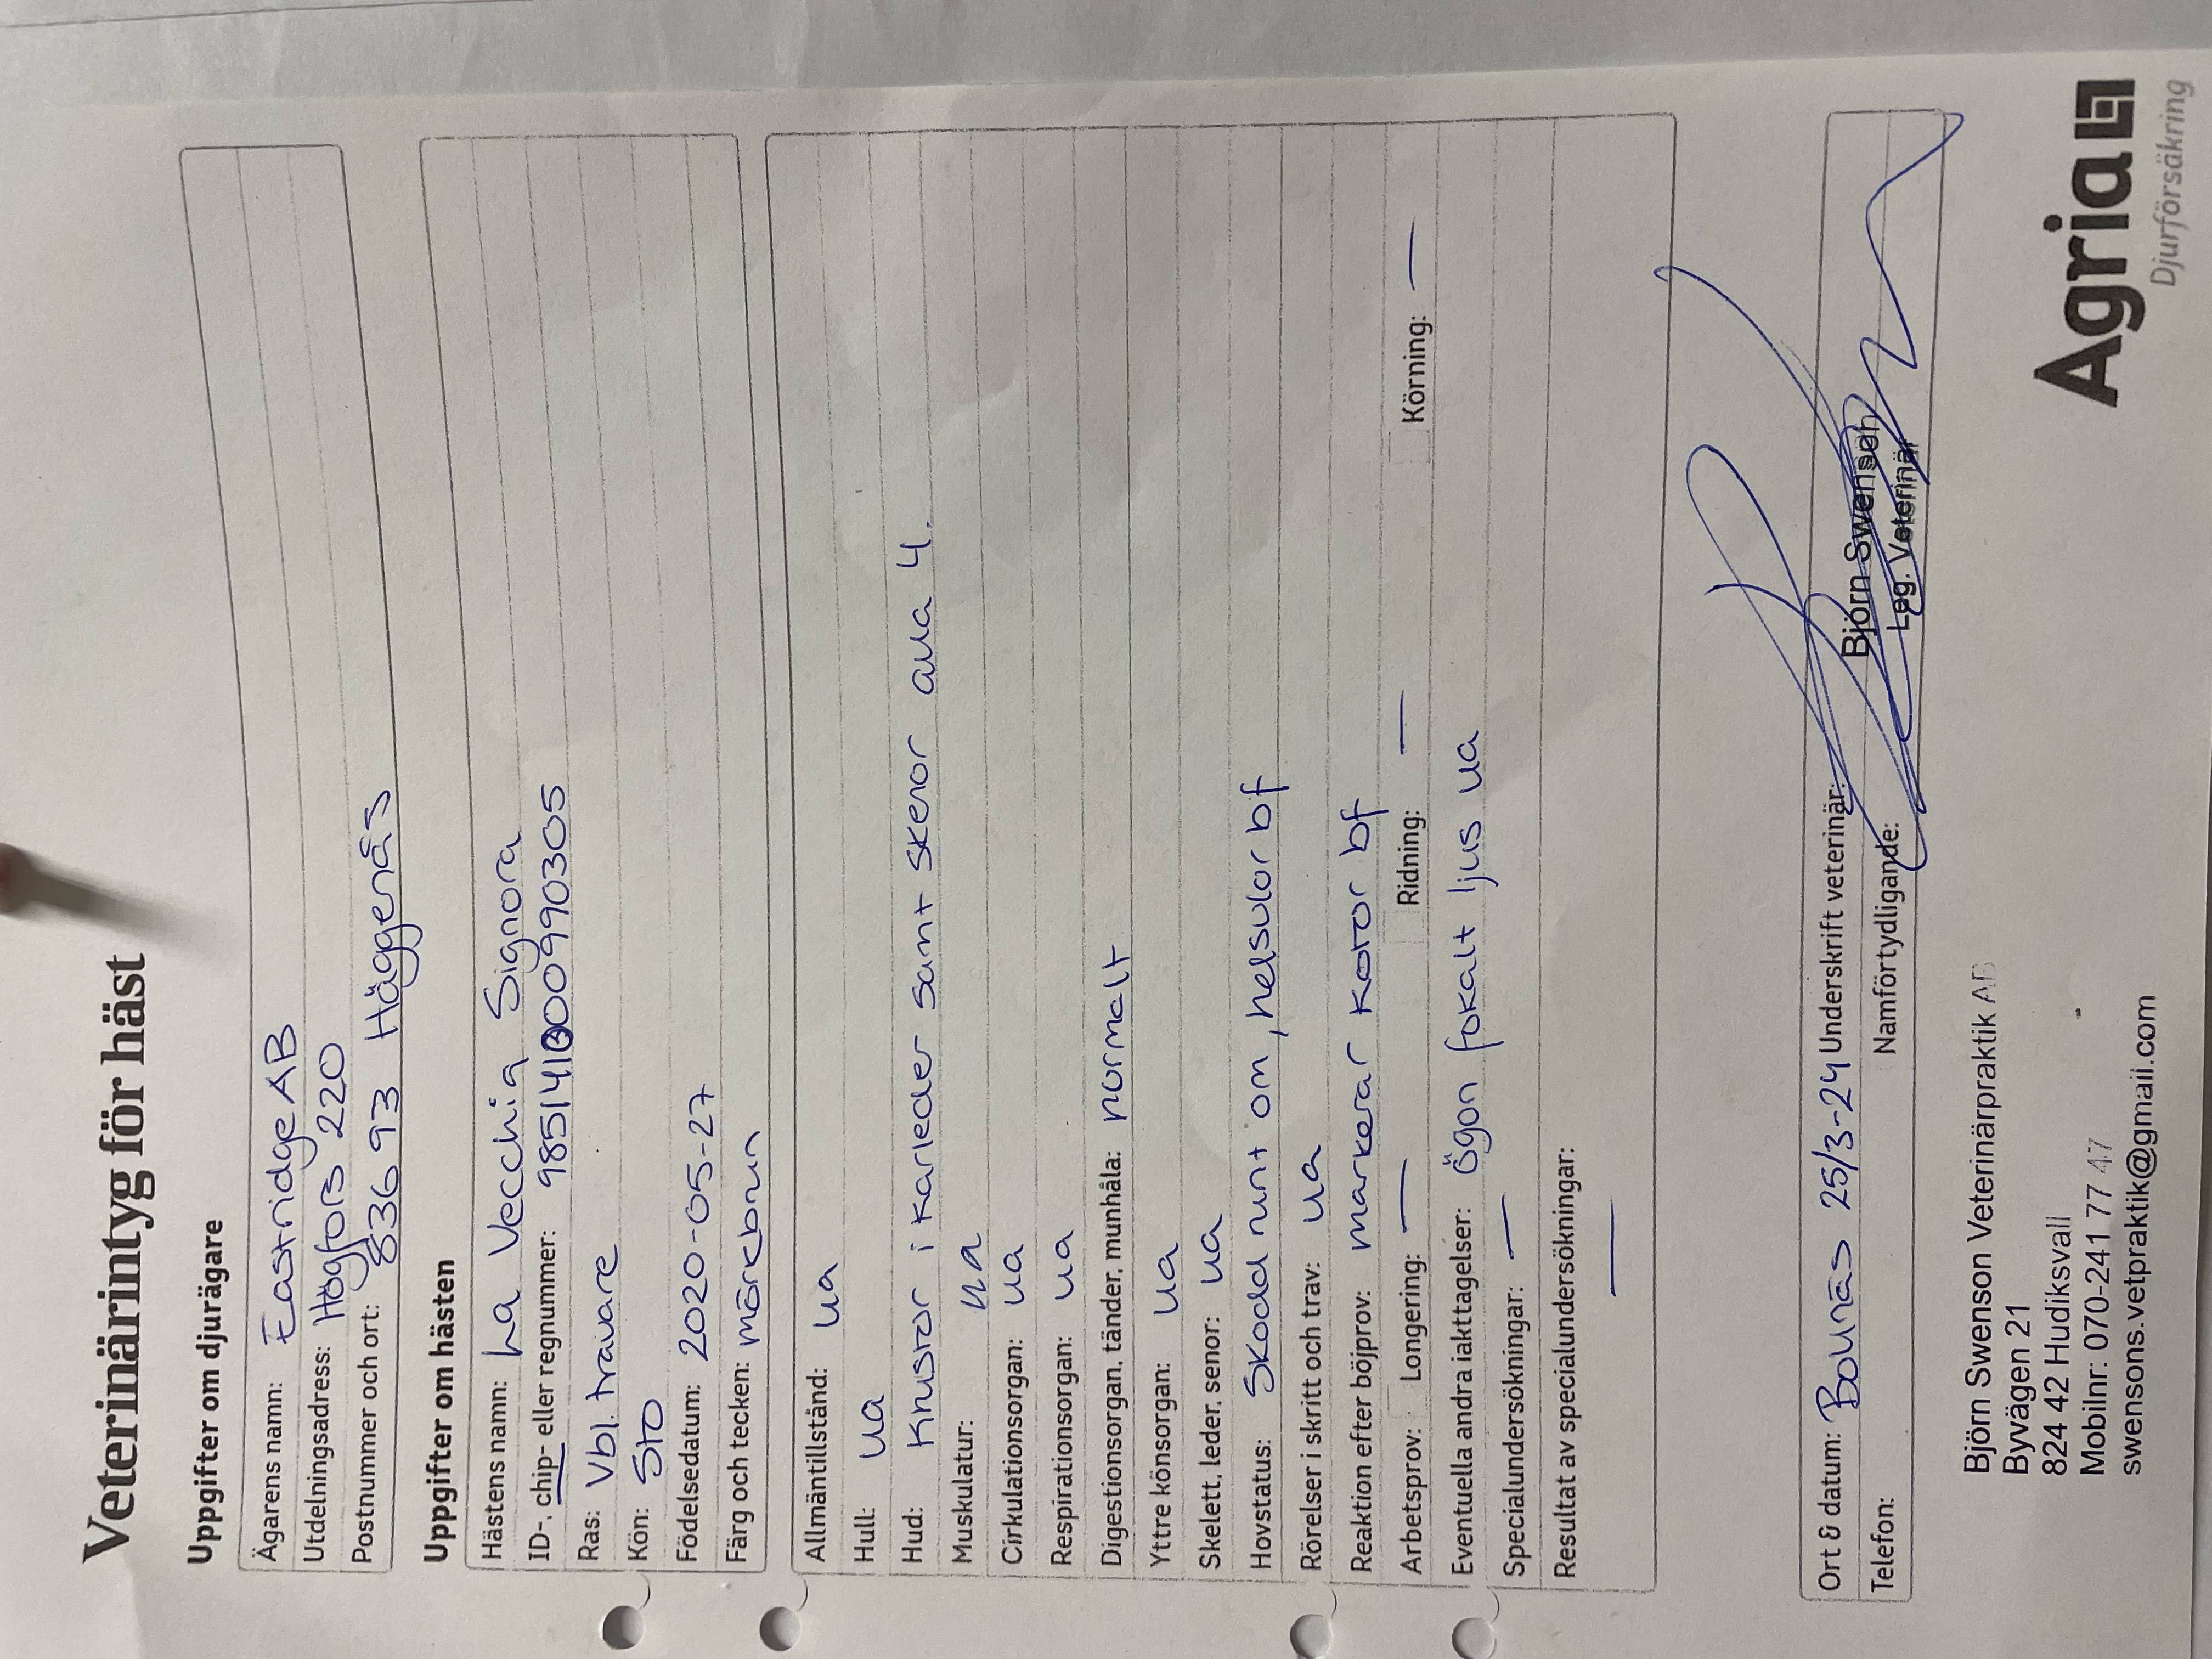 Veterinärintyg för häst
Uppgifter om djurägare
Ägarens namn: Eastridge AB
Utdelningsadress: Högfors 220
Postnummer och ort: 836 93 Häggenås
Uppgifter om hästen
Hästens namn: La Vecchia Signora
ID-, chip- eller regnummer: 985141000990305
Ras: Vbl. travare
Kön: Sto
Födelsedatum: 2020-05-27
Färg och tecken: mörkbrun
Allmäntillstånd: ua
Hull: ua
Hud: Knustor i karleder samt skenor alla 4.
Muskulatur: ua
Cirkulationsorgan: ua
Respirationsorgan: ua
Digestionsorgan, tänder, munhåla: normalt
Yttre könsorgan: ua
Skelett, leder, senor: ua
Hovstatus: Skodd runt om, helsulor bf
Rörelser i skritt och trav: ua
Reaktion efter böjprov: markerar kotor bf
Arbetsprov: Longering: — Ridning: — Körning: —
Eventuella andra iakttagelser: Ögon fokalt ljus ua
Specialundersökningar: —
Resultat av specialundersökningar:
—
Ort & datum: 25/3-24 Underskrift veterinär:
Telefon: Namförtydligande:
Björn Swenson
Leg. Veterinär
Björn Swenson Veterinärpraktik AB
Byvägen 21
824 42 Hudiksvall
Mobilnr: 070-241 77 47
swensons.vetpraktik@gmail.com
Agria
Djurförsäkring